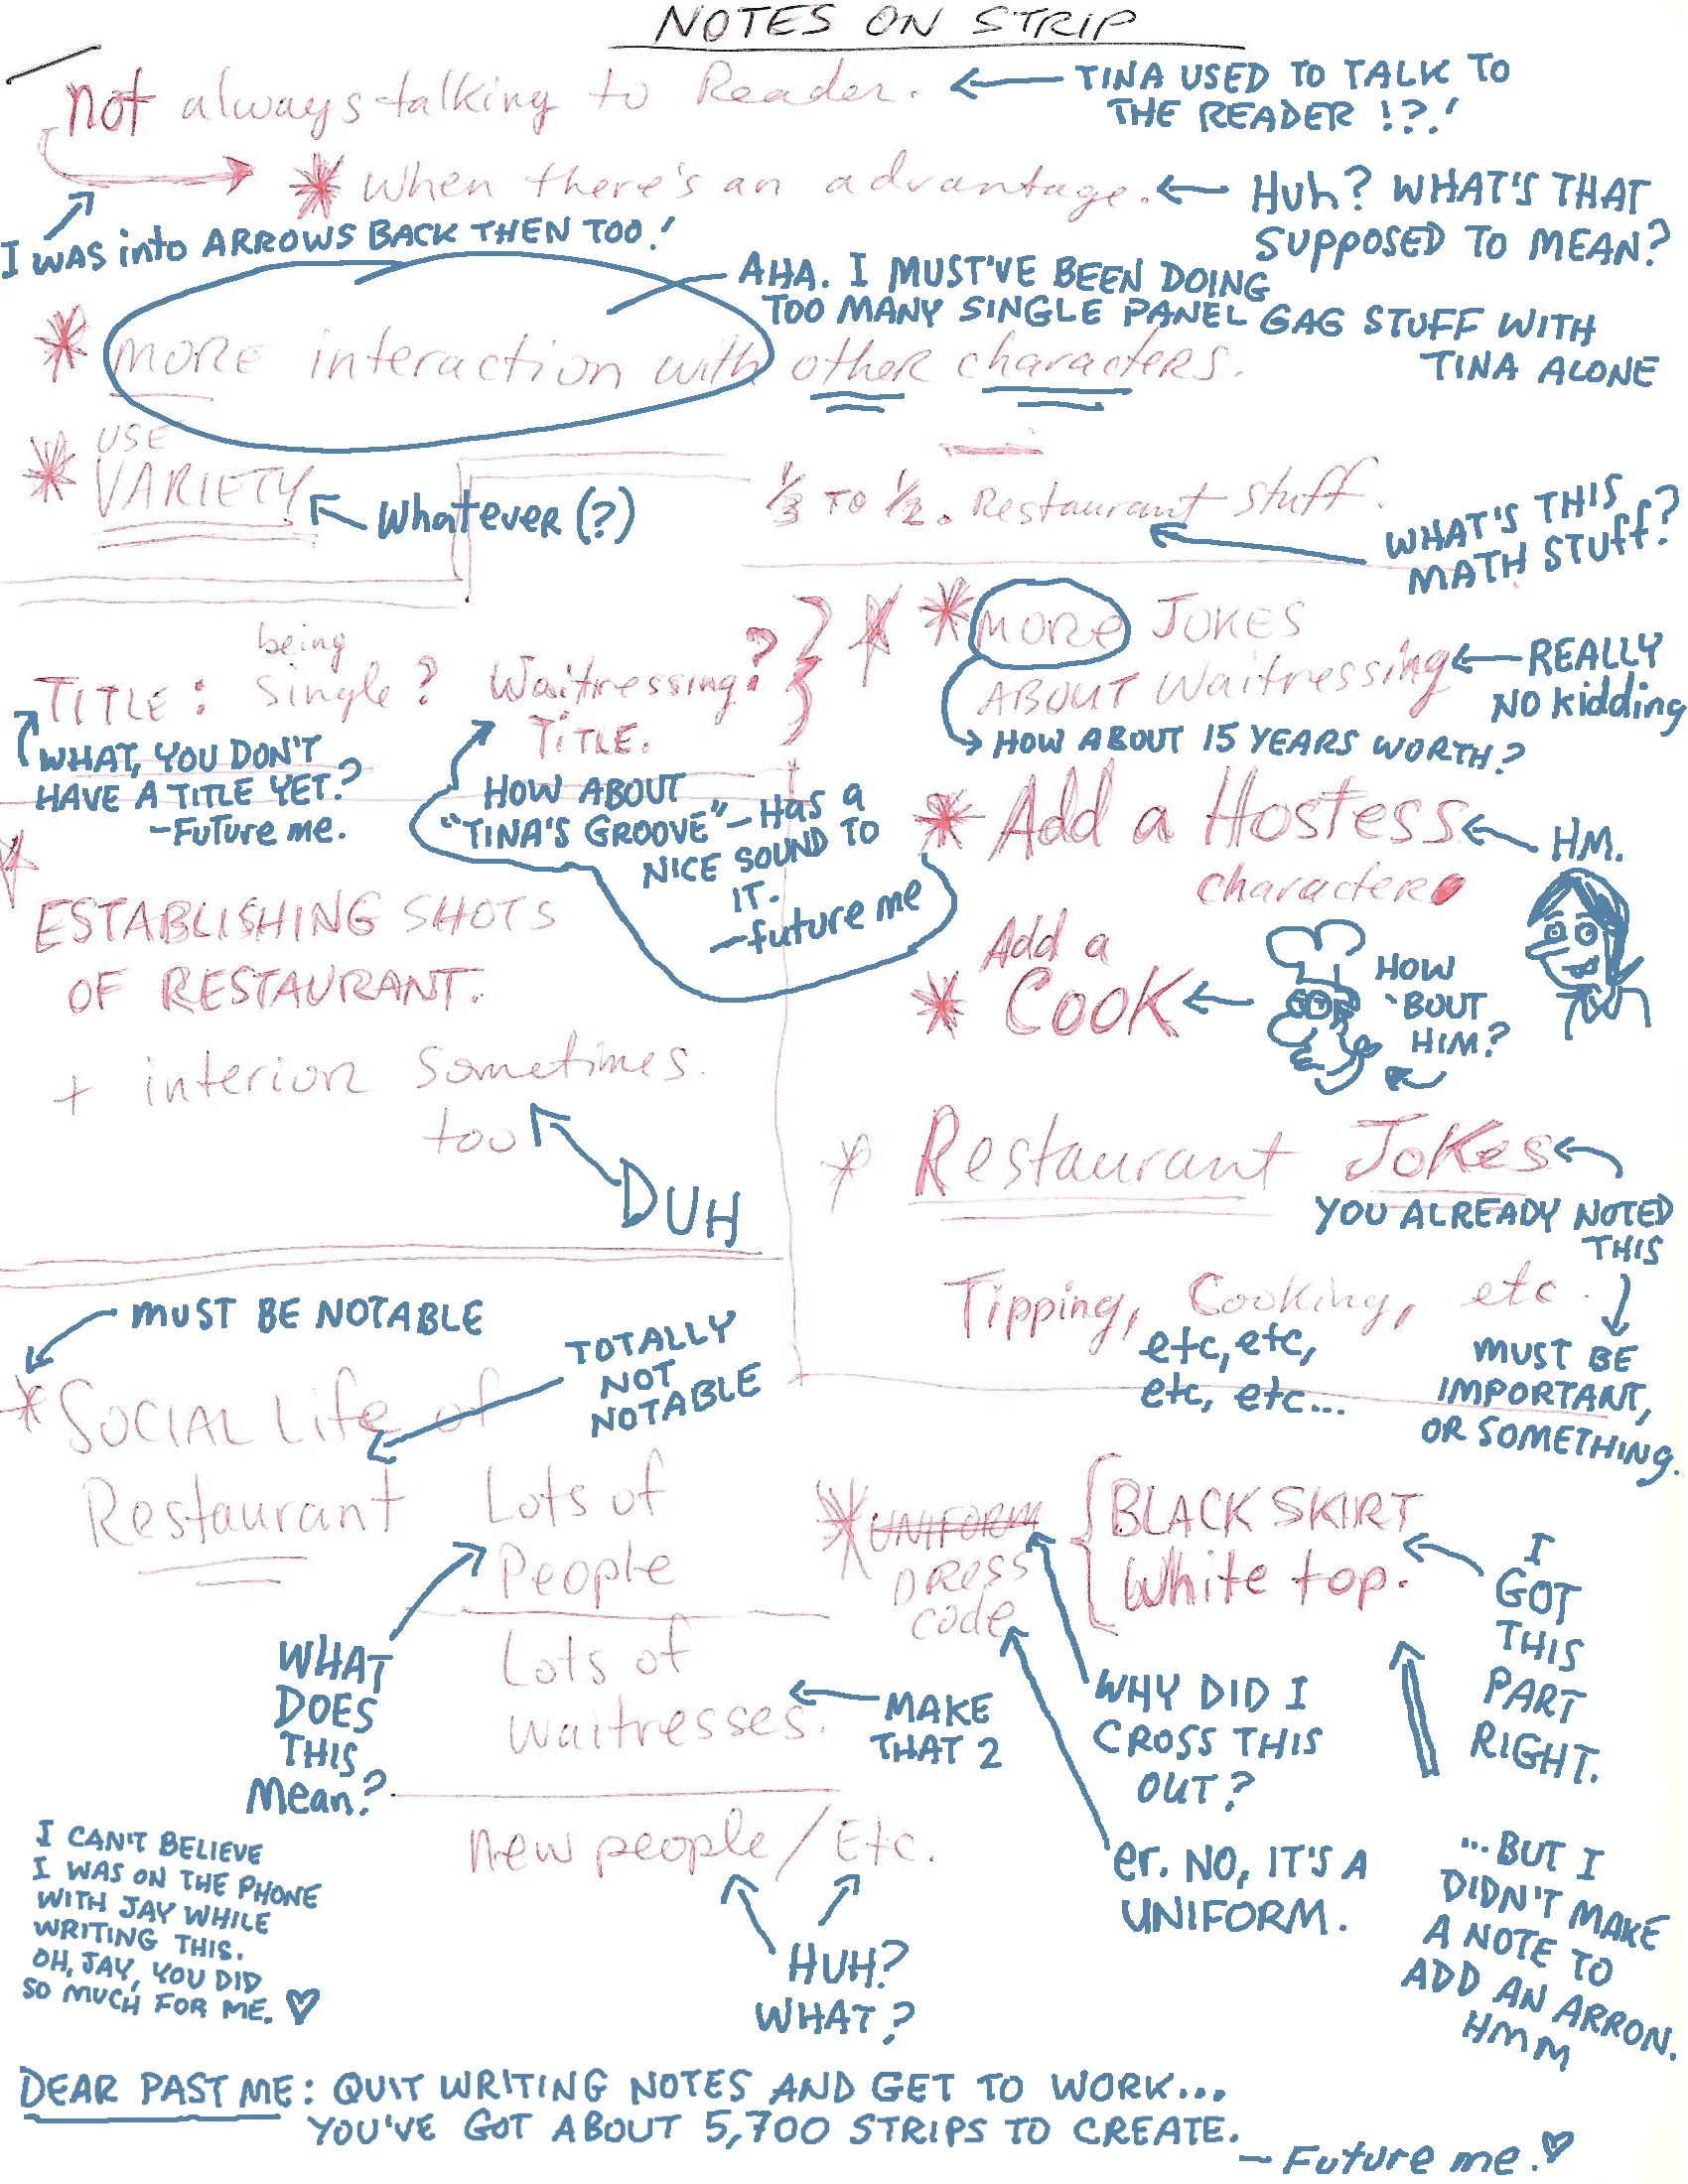 NOTES ON STRIP
not always talking to Reader.
TINA USED TO TALK TO
THE READER !?!
* When there's an advantage.
Huh? WHAT'S THAT
SUPPOSED TO MEAN?
I WAS into ARROWS BACK THEN TOO!
AHA. I MUST'VE BEEN DOING
TOO MANY SINGLE PANEL GAG STUFF WITH
TINA ALONE
* MORE interaction with other characters.
* USE
VARIETY
Whatever (?)
1/3 TO 1/2. Restaurant stuff.
WHAT'S THIS
MATH STUFF?
being
TITLE: Single? Waitressing?
TITLE.
WHAT, YOU DON'T
HAVE A TITLE YET?
-Future me.
HOW ABOUT
"TINA'S GROOVE" - HAS A
NICE SOUND TO
IT.
-future me
* MORE JOKES
ABOUT Waitressing
REALLY
NO kidding
HOW ABOUT 15 YEARS WORTH?
* Add a Hostess
character
HM.
Add a
* COOK
HOW
'BOUT
HIM?
ESTABLISHING SHOTS
OF RESTAURANT.
+ interior sometimes.
too
DUH
* Restaurant Jokes
YOU ALREADY NOTED
THIS
Tipping, Cooking, etc.
etc, etc,
etc, etc...
MUST BE
IMPORTANT,
OR SOMETHING.
MUST BE NOTABLE
* SOCIAL Life of
Restaurant
TOTALLY
NOT
NOTABLE
Lots of
People
Lots of
waitresses.
new people / Etc.
WHAT
DOES
THIS
Mean?
MAKE
THAT 2
HUH?
WHAT?
* UNIFORM
DRESS
code
BLACK SKIRT
White top.
I
GOT
THIS
PART
RIGHT.
WHY DID I
CROSS THIS
OUT?
er. NO, IT'S A
UNIFORM.
...BUT I
DIDN'T MAKE
A NOTE TO
ADD AN ARRON.
HMM
I CAN'T BELIEVE
I WAS ON THE PHONE
WITH JAY WHILE
WRITING THIS.
OH, JAY, YOU DID
SO MUCH FOR ME. ♡
DEAR PAST ME: QUIT WRITING NOTES AND GET TO WORK...
YOU'VE GOT ABOUT 5,700 STRIPS TO CREATE.
- Future me. ♡